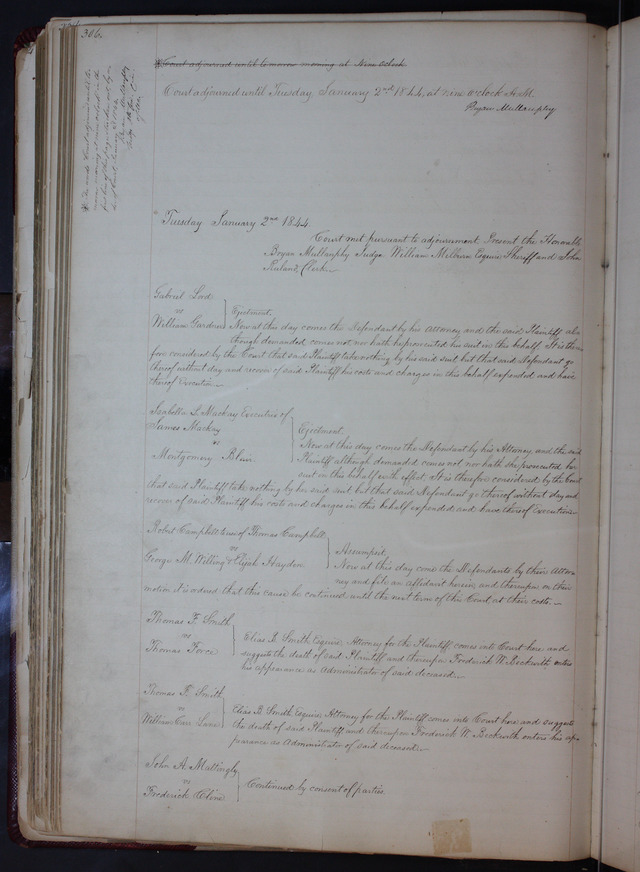 306.
Court adjourned until tomorrow morning at Nine Oclock
Court adjourned until Tuesday January 2nd 1844, at nine oclock A.M.
Bryan Mullanphy
Tuesday January 2nd 1844.
Court met pursuant to adjournment. Present the Honorable
Bryan Mullanphy Judge William Milburn Esquire Sheriff and John
Ruland, Clerk.
Gabriel Lord
vs
Ejectment.
William Gardner Now at this day comes the Defendant by his Attorney and the said Plaintiff al
though demanded comes not nor hath he prosecuted his suit in this behalf. It is there
fore considered by the Court that said Plaintiff take nothing by his said suit but that said Defendant go
thereof without day and recover of said Plaintiff his costs and charges in this behalf expended and have
thereof Execution
Isabella L. Mackay Executrix of
James Mackay
vs
Montgomery Blair
Ejectment.
Now at this day comes the Defendant by his Attorney and the said
Plaintiff although demanded comes not nor hath she prosecuted her
suit in this behalf with effect. It is therefore considered by the Court
that said Plaintiff take nothing by her said suit but that said Defendant go thereof without day and
recover of said Plaintiff his costs and charges in this behalf expended and have thereof Execution
Robert Campbell of Thomas Campbell
vs
George M. Willing & Elijah Hayden
Assumpsit
Now at this day come the Defendants by their Attor
ney and file an affidavit herein, and thereupon on their
motion it is ordered that this cause be continued until the next term of this Court at their costs.
Thomas F. Smith
vs
Thomas Force
Elias B. Smith Esquire, Attorney for the Plaintiff, comes into Court here and
suggests the death of said Plaintiff and thereupon Frederick W. Beckwith enters
his appearance as Administrator of said deceased.
Thomas F. Smith
vs
William Carr Lane
Elias B. Smith Esquire, Attorney for the Plaintiff comes into Court here and suggests
the death of said Plaintiff and thereupon Frederick W. Beckwith enters his ap
pearance as Administrator of said deceased.
John A. Mattingly
vs
Frederick Cline
Continued by consent of parties.